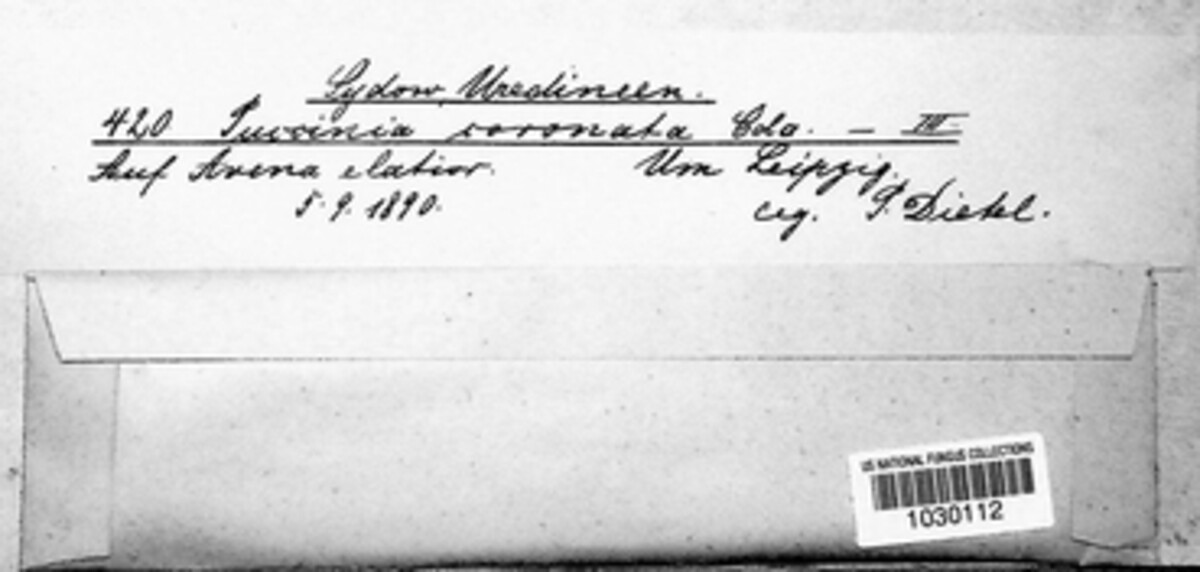 Sydow, Uredineen.
420. Puccinia coronata Cda. — III
Auf Avena elatior. Um Leipzig.
5. 9. 1890. leg. P. Dietel.
US NATIONAL FUNGUS COLLECTIONS
1030112